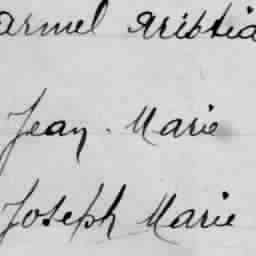 armel Aristid
Jean. Marie
Joseph Marie